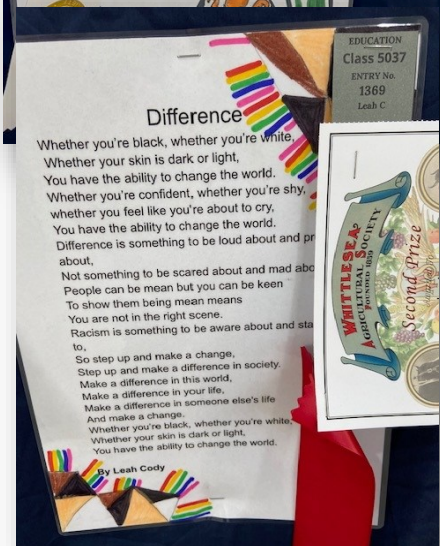 EDUCATION
Class 5037
ENTRY No.
1369
Leah C
Difference
Whether you're black, whether you're white,
Whether your skin is dark or light,
You have the ability to change the world.
Whether you're confident, whether you're shy,
whether you feel like you're about to cry,
You have the ability to change the world.
Difference is something to be loud about and
about,
Not something to be scared about and mad
People can be mean but you can be keen
To show them being mean means
You are not in the right scene.
Racism is something to be aware about and
to,
So step up and make a change,
Step up and make a difference in society.
Make a difference in this world,
Make a difference in your life,
Make a difference in someone else's life
And make a change.
Whether you're black, whether you're white,
Whether your skin is dark or light,
You have the ability to change the world.
By Leah Cody
WHITTLESEA
AGRICULTURAL SOCIETY
FOUNDED 1859
Second Prize